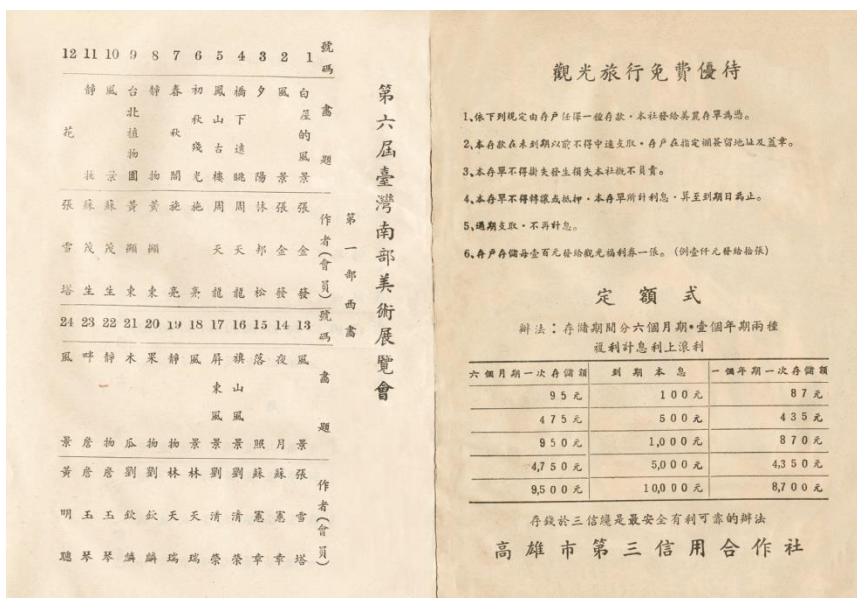 第六屆臺灣南部美術展覽會
第一部西畫
號碼 畫題 作者(會員)
1 白屋的風景 張金發
2 風景 張金發
3 夕陽 林邦松
4 橋下遠眺 周天龍
5 鳳山古樓 周天龍
6 初秋殘光 施亮
7 春秋閣 施亮
8 靜物 黃顯東
9 台北植物園 黃顯東
10 風景 蘇茂生
11 靜物 蘇茂生
12 花 張雪塔
號碼 畫題 作者(會員)
13 風景 張雪塔
14 夜月 蘇憲章
15 落照 蘇憲章
16 旗山風景 劉清榮
17 屏東風景 劉清榮
18 風景 林天瑞
19 靜物 林天瑞
20 果物 劉欽麟
21 木瓜 劉欽麟
22 靜物 詹玉琴
23 畔 詹玉琴
24 風景 黃明聰
觀光旅行免費優待
1、依下列規定由存戶任擇一種存款・本社發給美麗存單為憑。
2、本存款在未到期以前不得中途支取・存戶在指定欄簽留地址及蓋章。
3、本存單不得掛失發生損失本社概不負責。
4、本存單不得轉讓或抵押・本存單所計利息・算至到期日為止。
5、過期支取・不再計息。
6、存戶存儲每壹百元發給觀光福利券一張。(例壹仟元發給拾張)
定額式
辦法:存儲期間分六個月期・壹個年期兩種
複利計息利上滾利
六個月期一次存儲額 到期本息 一個年期一次存儲額
95元 100元 87元
475元 500元 435元
950元 1,000元 870元
4,750元 5,000元 4,350元
9,500元 10,000元 8,700元
存錢於三信總是最安全有利可靠的辦法
高雄市第三信用合作社